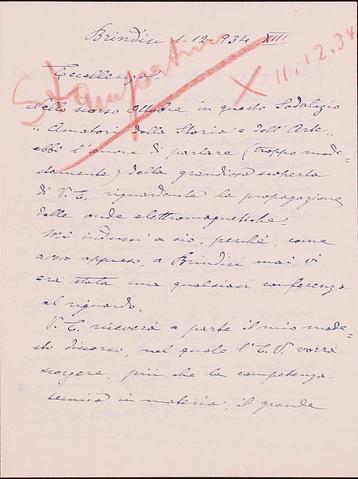 Brindisi 1-12-934 XIII
Stampata
X 11.12.34
Eccellenza,
Nello scorso Ottobre in questo Sodalizio
"Amatori della Storia e dell'Arte"
ebbi l'onore di parlare (troppo mode=
stamente) della grandiosa scoperta
di V. E. riguardante la propagazione
delle onde elettromagnetiche.
Mi indussi a ciò, perché, come
avevo appreso, a Brindisi mai vi
era stata una qualsiasi conferenza
al riguardo.
V. E. riceverà a parte il mio mode=
sto discorso, nel quale l'E. V. vorrà
scorgere, più che la competenza
tecnica in materia, il grande